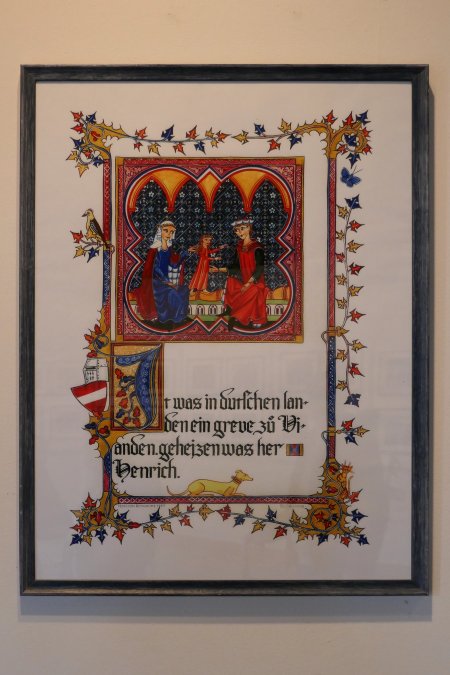 It was in dutſchen lan-
den ein greve zů Vi-
anden. geheizen was her
Henrich.